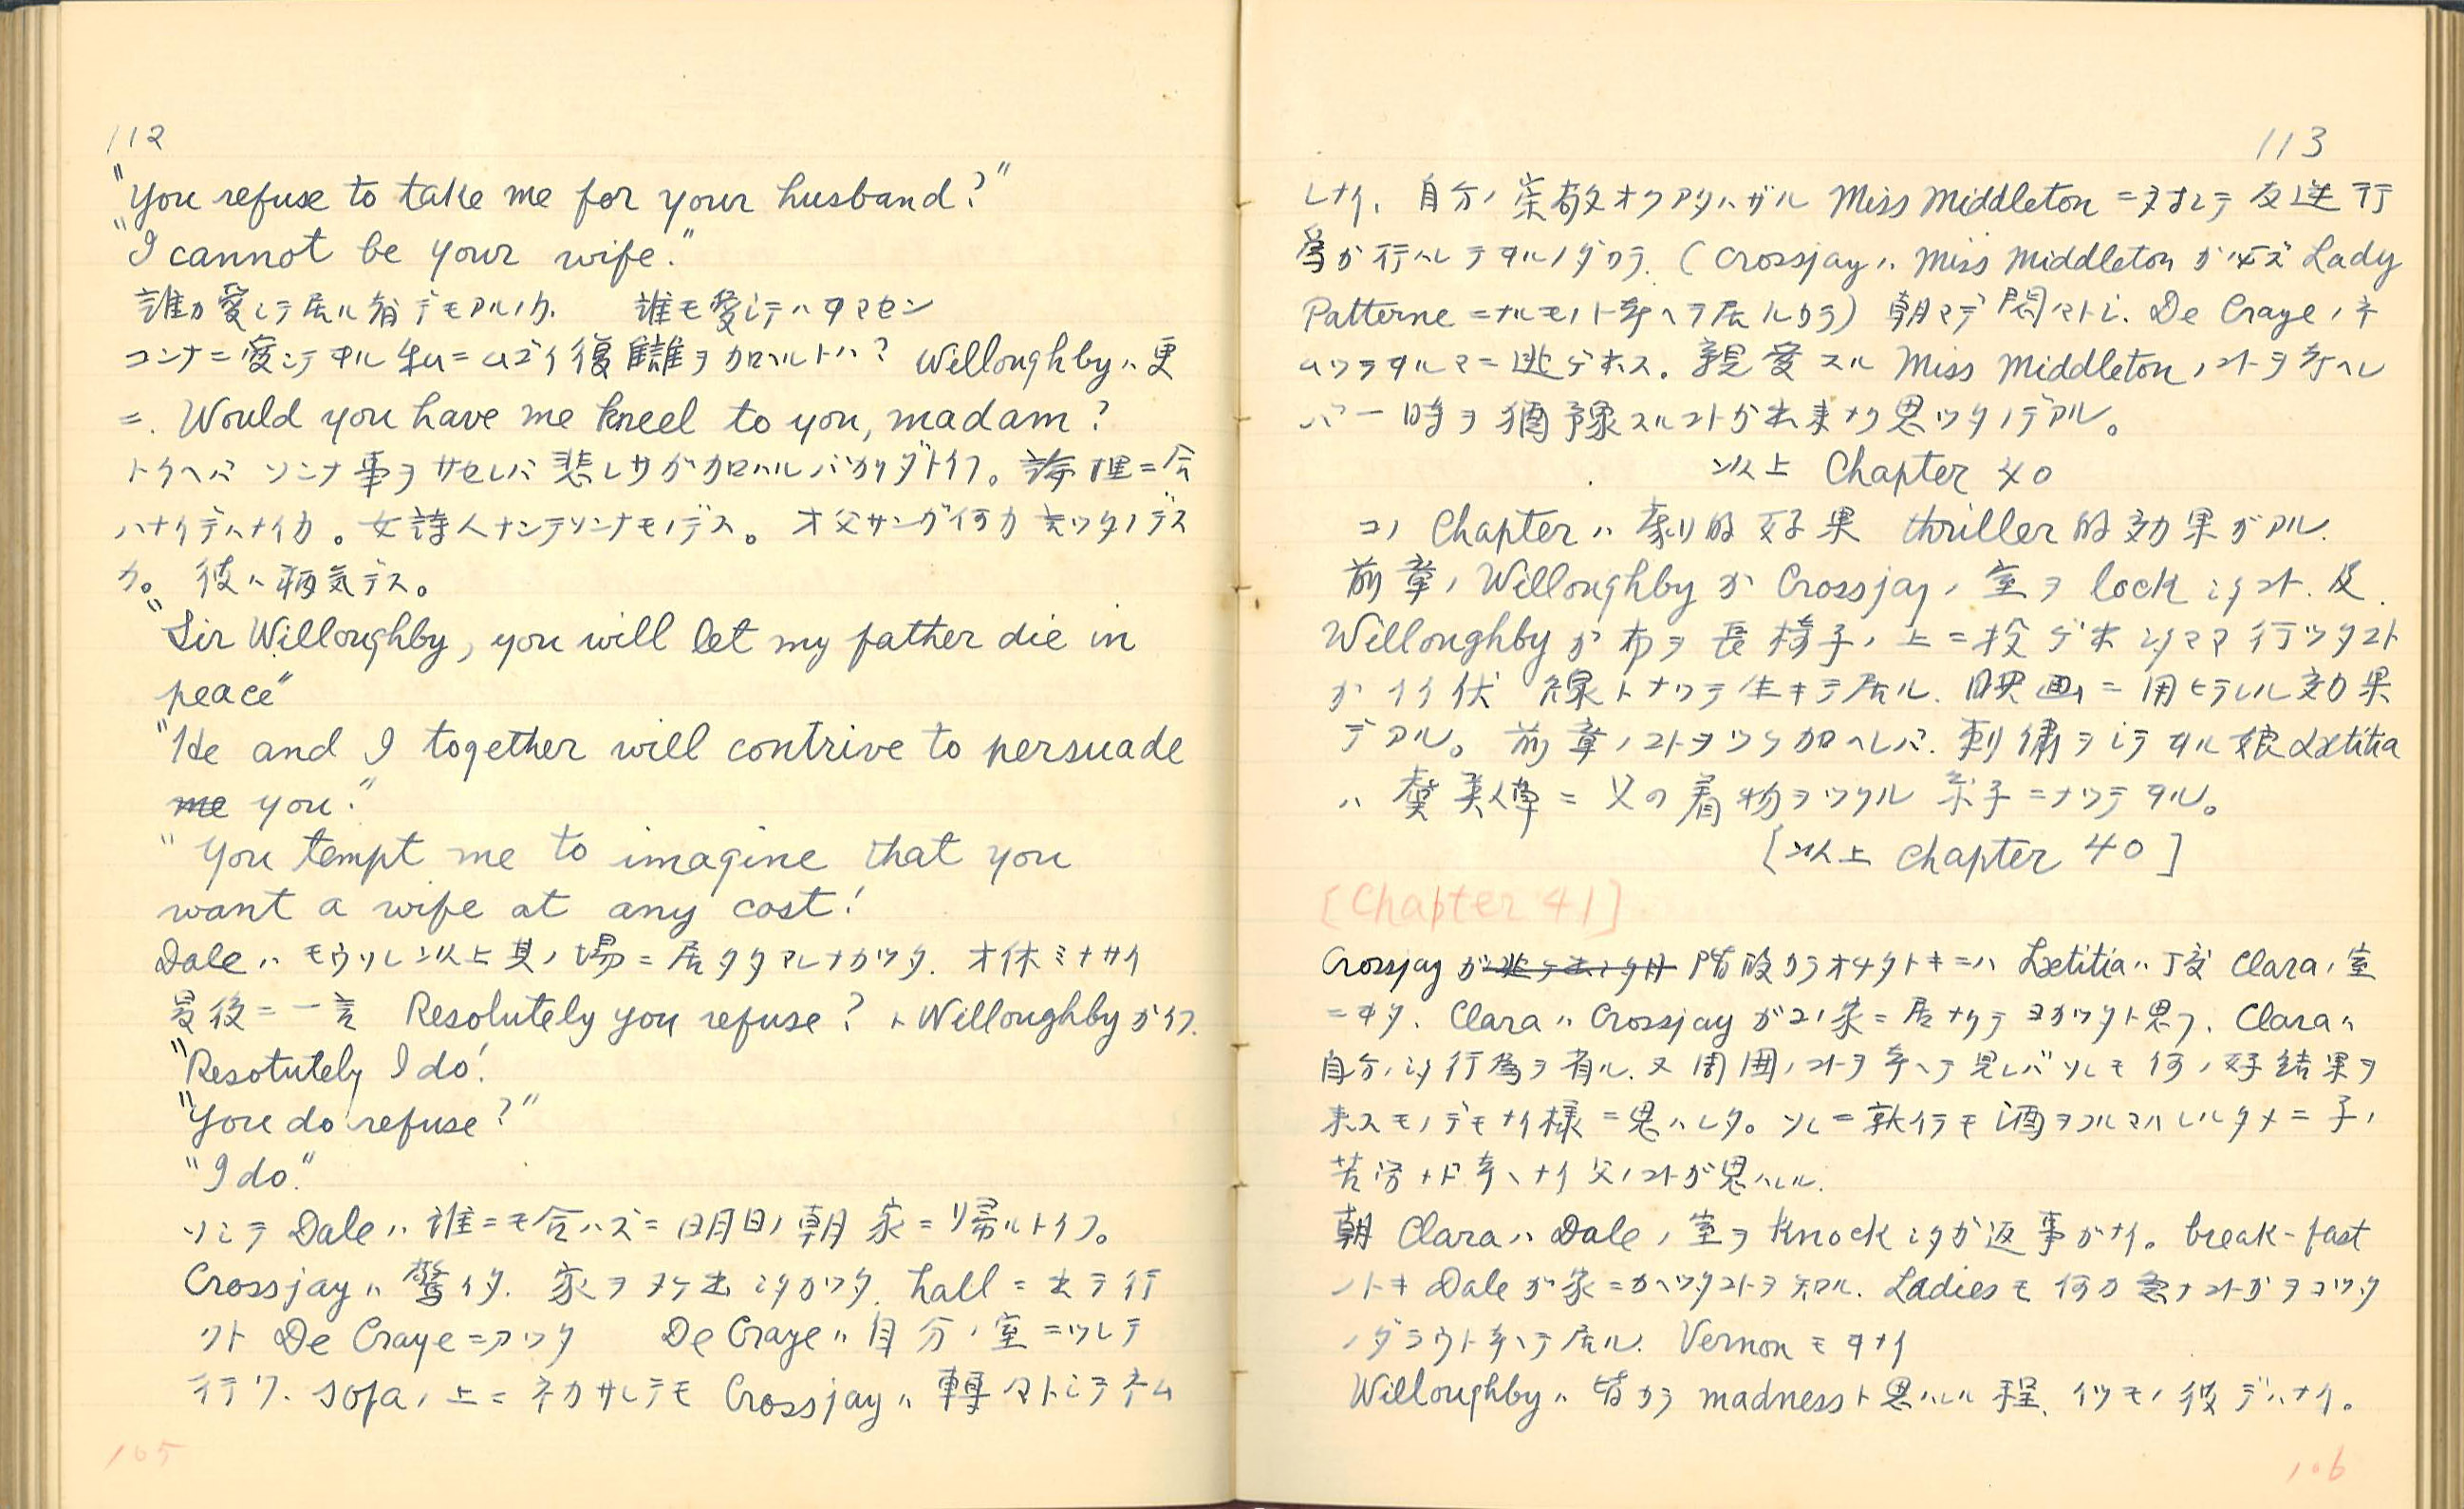 112
"You refuse to take me for your husband?"
"I cannot be your wife."
誰カ愛シテ居ル者デモアルノカ. 誰モ愛シテハヰマセン
コンナニ愛シテヰル私ニムゴイ復讎ヲ加ヘルトハ? Willoughbyハ更
ニ. Would you have me kneel to you, madam?
トイヘバ ソンナ事ヲサセレバ悲シサガ加ハルバカリダトイフ。論理ニ合
ハナイデハナイカ。女詩人ナンテソンナモノデス。オ父サンガ何カ言ツタノデス
カ。彼ハ病気デス。
"Sir Willoughby, you will let my father die in
peace"
"He and I together will contrive to persuade
me you."
"You tempt me to imagine that you
want a wife at any cost!
Daleハモウソレ以上其ノ場ニ居タタマレナカツタ. オ休ミナサイ
最後ニ一言 Resolutely you refuse? トWilloughbyガイフ.
"Resotutely I do!
"You do refuse?"
"I do."
ソシテDaleハ誰ニモ会ハズニ明日ノ朝家ニ帰ルトイフ。
Crossjayハ驚イタ. 家ヲヌケ出シタカツタ. hallニ出テ行
クト De Crayeニアツタ De Crayeハ自分ノ室ニツレテ
行ク. sofaノ上ニネカサレテモ Crossjayハ轉々トシテネム
105
113
レナイ. 自分ノ崇敬オクアタハザル Miss Middletonニ対シテ反逆行
為ガ行ハレテヰルノダカラ. (CrossjayハMiss Middletonガ必ズLady
Patterneニナルモノト考ヘテ居ルカラ) 朝マデ悶々トシ. De Crayeノネ
ムツテヰルマニ逃ゲ出ス。親愛スル Miss Middletonノコトヲ考ヘレ
バ一時ヲ猶予スルコトガ出来ナク思ツタノデアル。
以上 Chapter 40
コノ Chapterハ劇的効果 thriller的効果ガアル.
前章ノWilloughbyガCrossjayノ室ヲlockシタコト. 及.
Willoughbyガ布ヲ長椅子ノ上ニ投ゲ出シタママ行ツタコト
ガイイ伏線トナツテ生キテ居ル. 映画ニ用ヒラレル効果
デアル。前章ノコトヲツケ加ヘレバ. 刺繍ヲシテヰル娘Lætitia
ハ 父の着物ヲツクル 子ニナツテヰル。
[以上 chapter 40]
[Chapter 41]
Crossjayガ逃ゲ出シタ時 階段カラオチタトキニハ Lætitiaハ丁度Claraノ室
ニヰタ. ClaraハCrossjayガコノ家ニ居ナクテヨカツタト思フ. Claraハ
自分ノシタ行為ヲ省ル. 又周囲ノコトヲ考ヘテ見レバソレモ何ノ好結果ヲ
来スモノデモナイ様ニ思ハレタ。ソレニ就イテモ酒ヲフルマハレルタメニ子ノ
苦労ナド考ヘナイ父ノコトガ思ハレル.
朝 ClaraハDaleノ室ヲknockシタガ返事ガナイ。break-fast
ノトキDaleガ家ニカヘツタコトヲ知ル. Ladiesモ何カ急ナコトガヲコツタ
ノダラウト考ヘテ居ル. Vernonモヰナイ
Willoughbyハ皆カラmadnessト思ハレル程、イツモノ彼デハナイ。
106